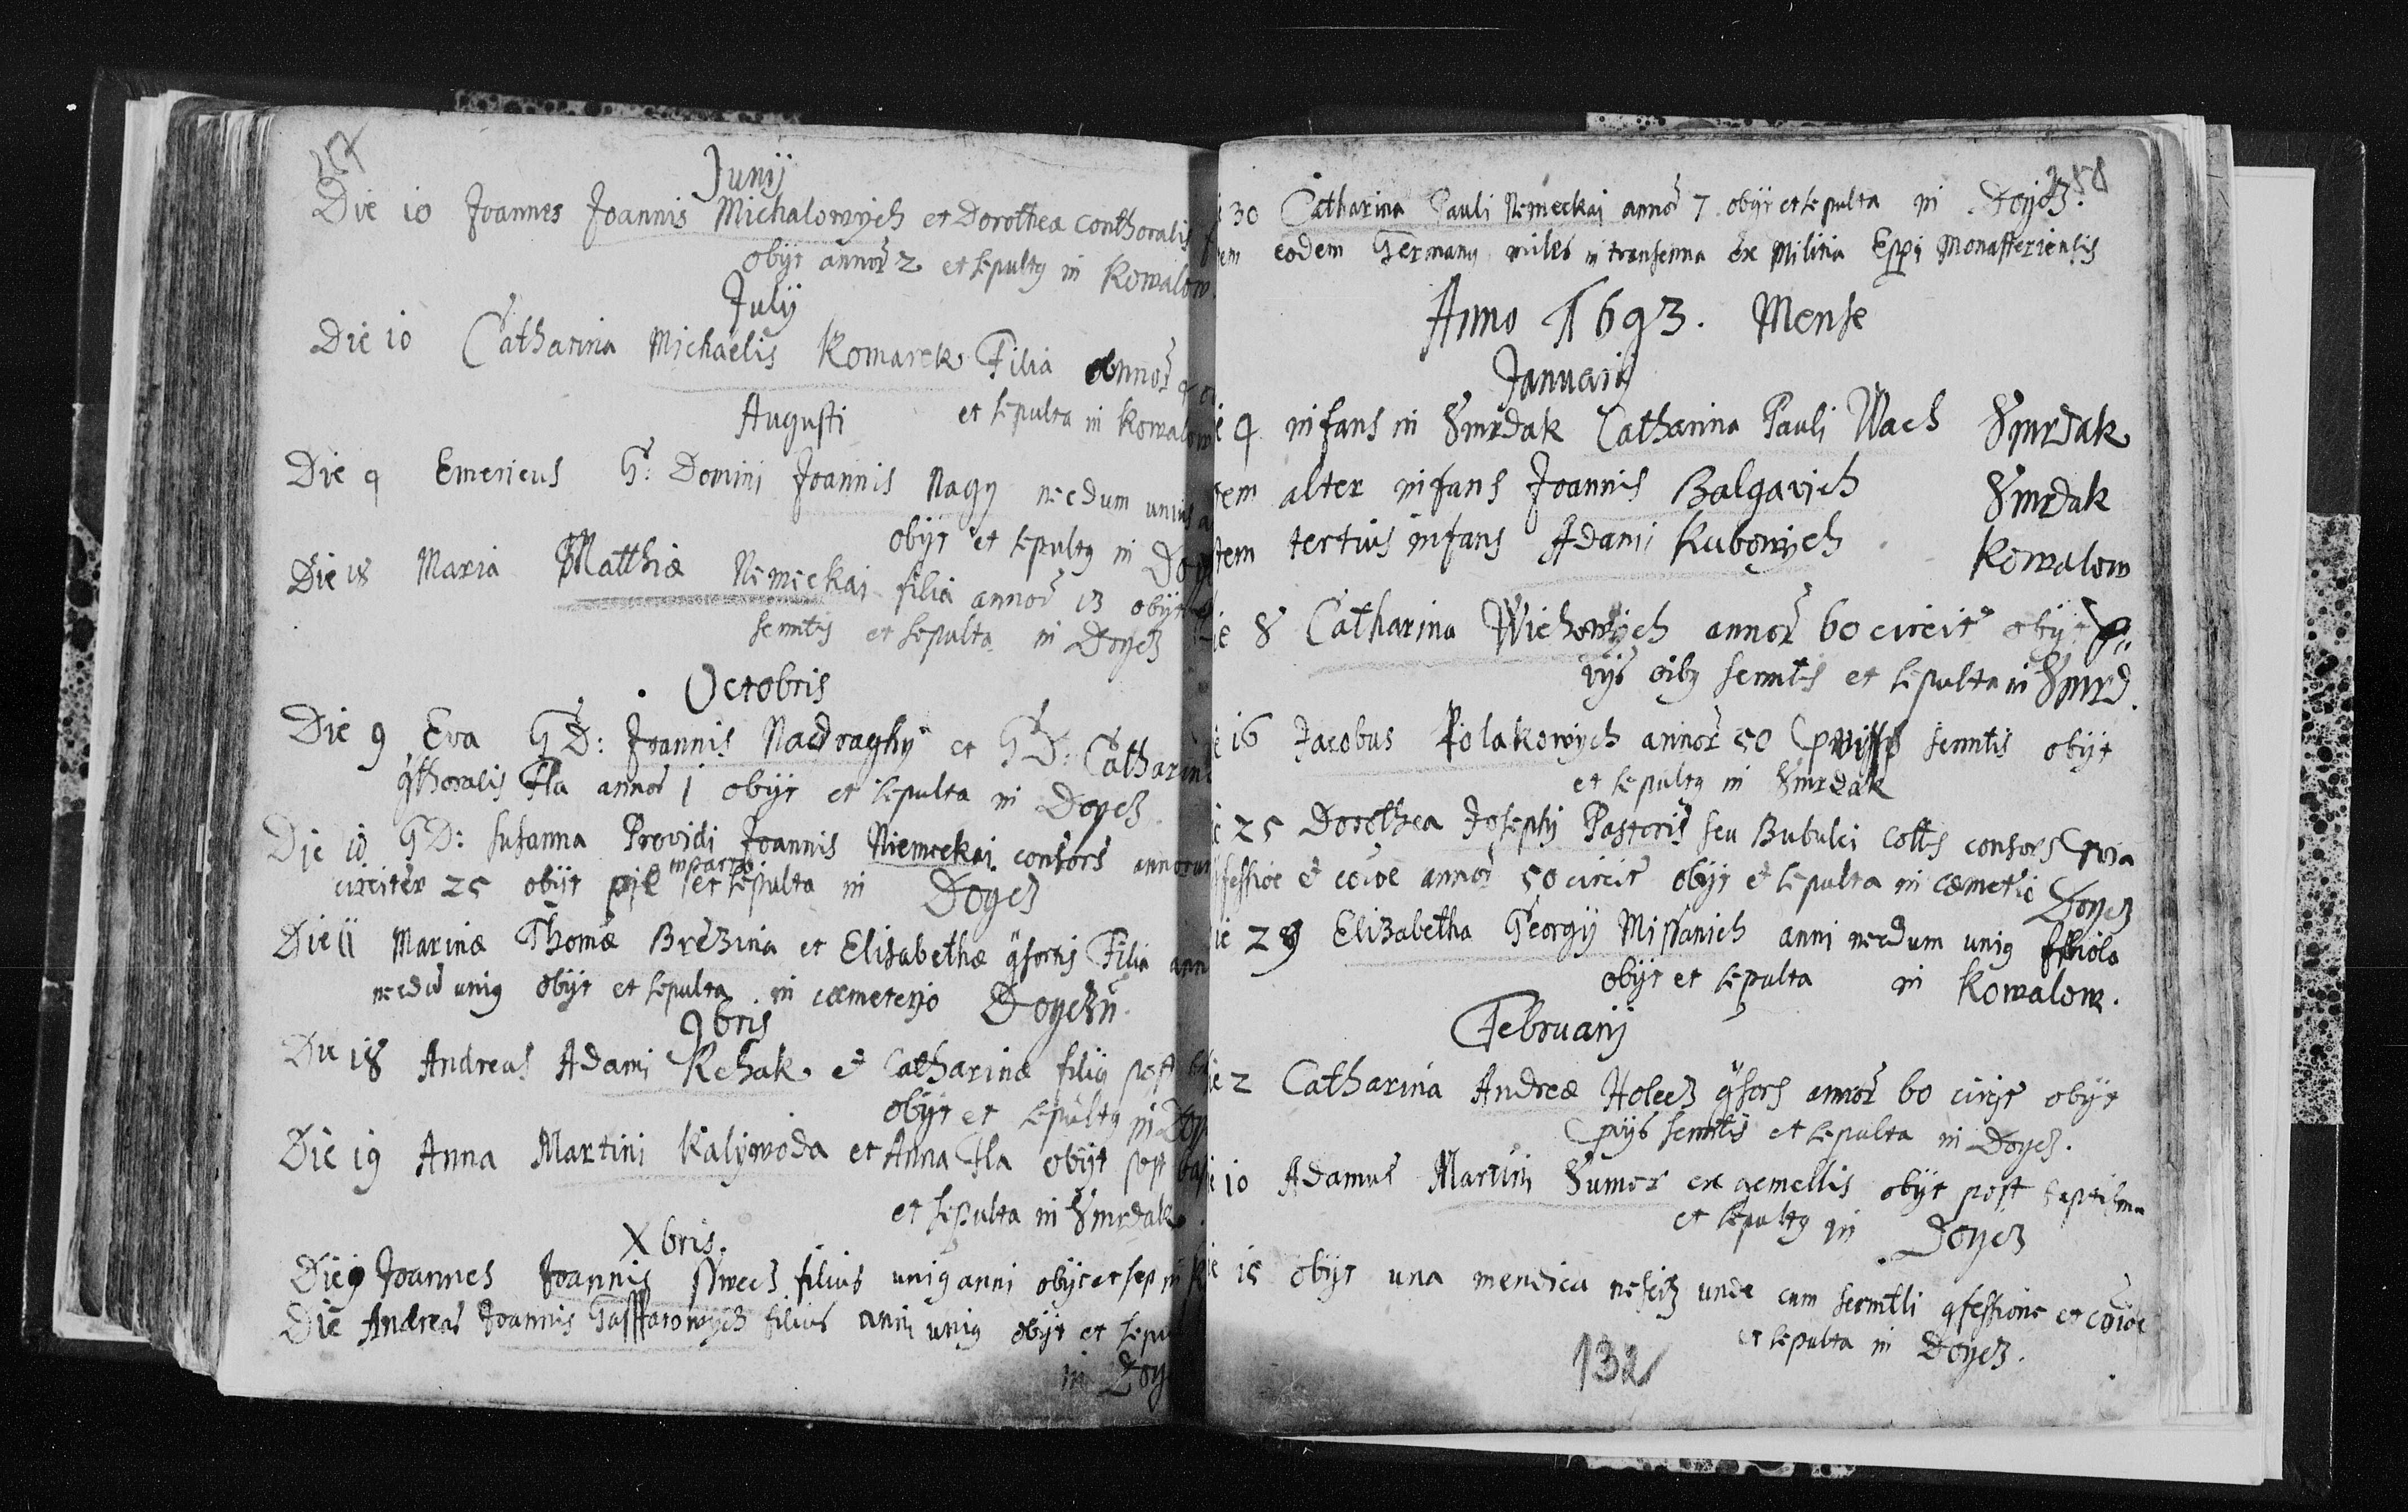 Junij
Die 10 Joannes Joannis Michalowych et Dorothea conthoralis
obijt annor 2 et sepultq in Kowalow
Julij
Die 10 Catharina Michaelis Komarek Filia annor
Augusti et sepulta in Kowalow
Die 9 Emericus G: Domini Joannis Nagy necdum unius
obijt et sepultq in Doy
Die 18 Maria Matthiæ Nemeckaj filia annor 13 obijt
semtis et sepulta in Doycz
Octobris
Die 9 Eva G D: Joannis Nadraghy et G D: Catharin
qthoralis Fla annor 1 obijt et sepulta in Doycz
Die 10 G D: Susanna Providi Joannis Niemeckai consors annorum
in partu
circiter 25 obijt pie et sepulta in Doycz
Die 11 Marinæ Thomæ Brezina et Elisabethæ qsortis Filia ann
necdu uniq obijt et sepulta in cæmeterio Doycz
9bris
Die 18 Andreas Adami Rehak et Catharinæ filiq post
obijt et sepultq in Doy
Die 19 Anna Martini Kaliwoda et Anna Fla obijt post bap
et sepulta in Smrdak
Xbris.
Die 9 Joannes Joannis Sswecz filius uniq anni obijt et sep in K
Die Andreas Joannis Gassparowych filius anni uniq obijt et sepu
in Doy
258
30 Catharina Pauli Nemeckaj annor 7 obijt et sepulta in Doycz.
em eodem Germanq miles in transenna ex Militia Eppi Monasteriensis
Anno 1693. Mense
Januarij
4 infans in Smrdak Catharina Pauli Wach Smrdak
tem alter infans Joannis Balgavich Smrdak
tem tertius infans Adami Kubowych Kowalow
ie 8 Catharina Wichowych annor 60 circit obijt p
vijs oibq semtis et sepulta in Smrd.
e 16 Jacobus Polakowych annor 50 pviss semtis obijt
et sepultq in Smrdak
e 25 Dorothea Josephi Pastoris seu Bubulci cottis consors pvia
qfessioe et coioe annor 50 circit obijt et sepulta in cæmetio Doycz
ie 29 Elizabetha Georgij Missanich anni necdum uniq filiola
obijt et sepulta in Kowalow.
Februarij
ie 2 Catharina Andreæ Holecz qsors annor 60 circit obijt
pvijs semtis et sepulta in Doycz.
e 10 Adamus Martini Sumer ex gemellis obijt post baptisma
et sepultq in Doycz
ie 15 obijt una mendica nescitz unde cum semtli qfessione et coioe
et sepulta in Doycz.
132